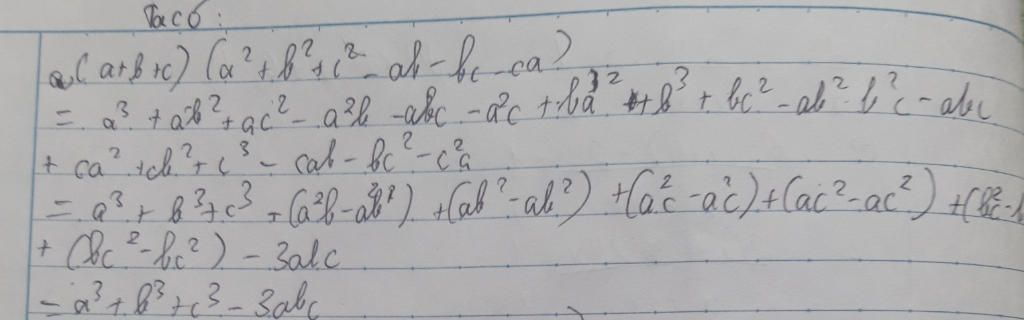 Ta có :
a, (a+b+c) (a² + b² + c² - ab - bc - ca)
= a³ + ab² + ac² - a²b - abc - a²c + ba² + b³ + bc² - ab² - b²c - abc
+ ca² + cb² + c³ - cab - bc² - c²a
= a³ + b³ + c³ + (a²b - a²b) + (ab² - ab²) + (a²c - a²c) + (ac² - ac²) + (b²c - b
+ (bc² - bc²) - 3abc
= a³ + b³ + c³ - 3abc